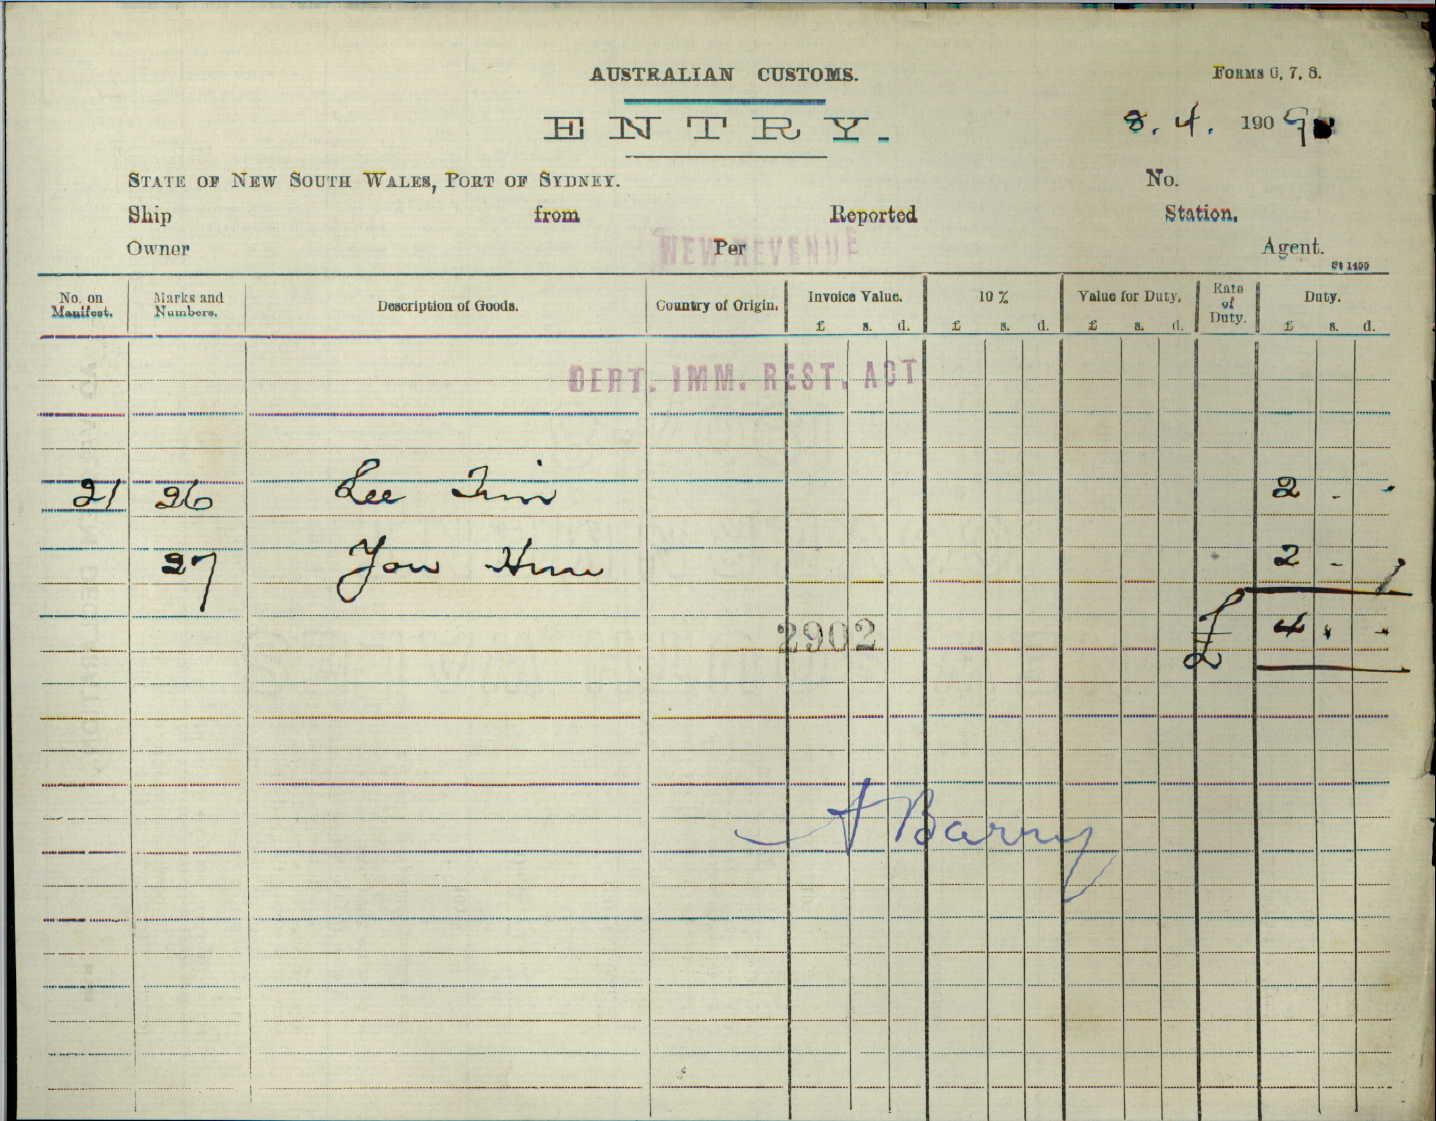 AUSTRALIAN CUSTOMS. FORMS 6, 7, 8.
ENTRY. 8. 4. 1909
STATE OF NEW SOUTH WALES, PORT OF SYDNEY. No.
Ship from Reported Station.
NEW REVENUE
Owner Per Agent.
St 1499
No. on Manifest. Marks and Numbers. Description of Goods. Country of Origin. Invoice Value. 10 % Value for Duty. Rate of Duty. Duty.
£ s. d. £ s. d. £ s. d. £ s. d.
CERT. IMM. REST. ACT
21 26 Lee 2 - -
27 You 2 - -
2902 £ 4 - -
A Barry